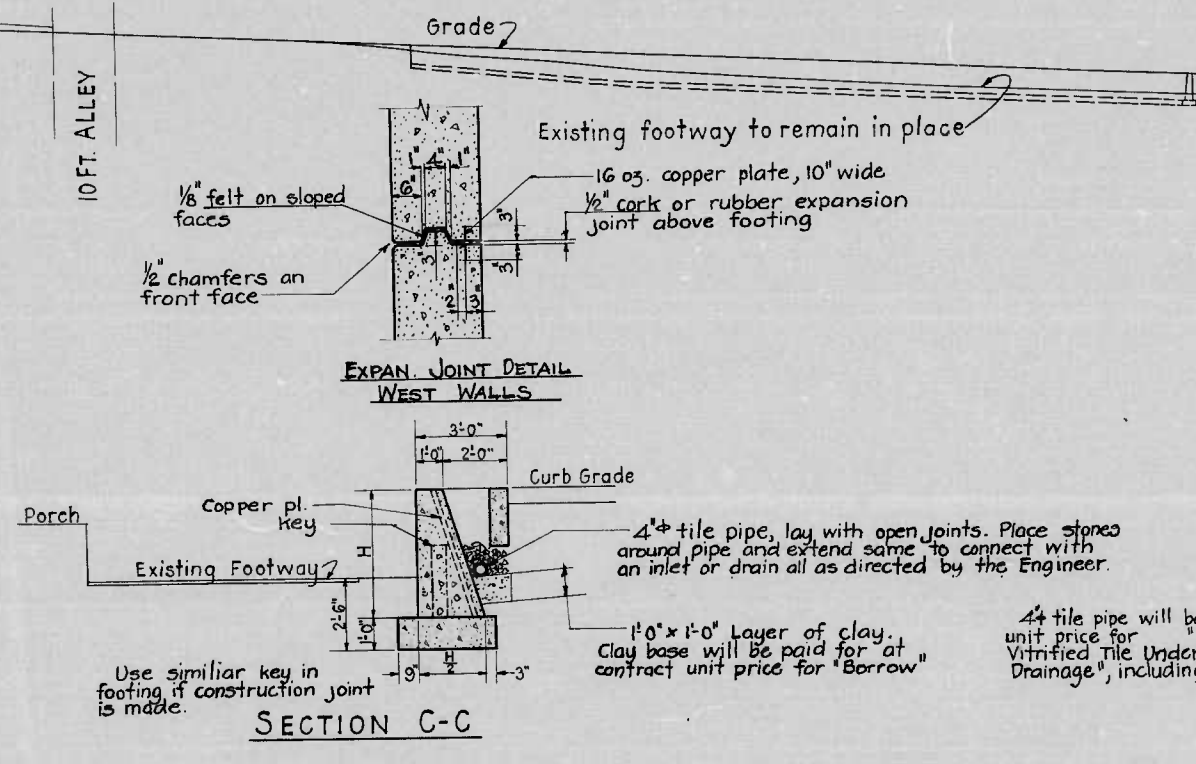 Grade
10 FT. ALLEY
Existing footway to remain in place
1" 4" 1"
6"
1/8" felt on sloped
faces
16 oz. copper plate, 10" wide
1/2" cork or rubber expansion
joint above footing
3"
3"
3"
1/2" chamfers an
front face
2" 3"
EXPAN. JOINT DETAIL
WEST WALLS
3'-0"
1'-0" 2'-0"
Curb Grade
Copper pl.
Key
Porch
H
4"ϕ tile pipe, lay with open joints. Place stones
around pipe and extend same to connect with
an inlet or drain all as directed by the Engineer.
Existing Footway
2'-6"
1'-0"
1'-0" x 1'-0" Layer of clay.
Clay base will be paid for at
contract unit price for "Borrow"
4"ϕ tile pipe will be
unit price for "
Vitrified Tile Under
Drainage", including
Use similiar key in
footing if construction joint
is made.
9" H/2 3"
SECTION C-C